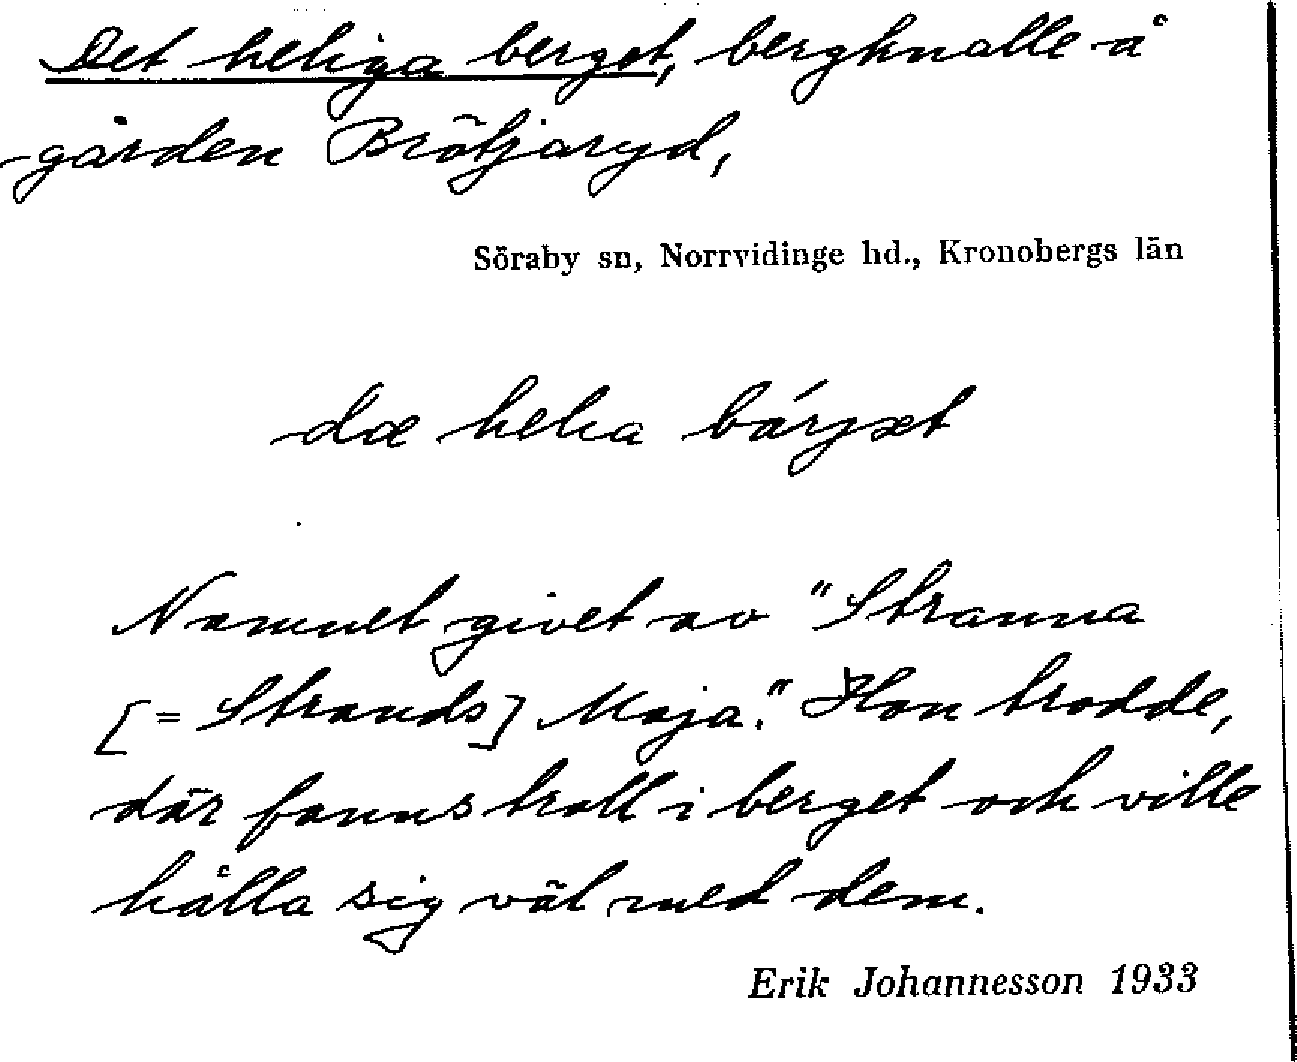 Det heliga berget, bergknalle å
gården Brötjaryd,
Söraby sn, Norrvidinge hd., Kronobergs län
dæ helia bárjæt
Namnet givet av "Stranna
[= Strands] Maja". Hon trodde,
där fanns troll i berget och ville
hålla sig väl med dem.
Erik Johannesson 1933